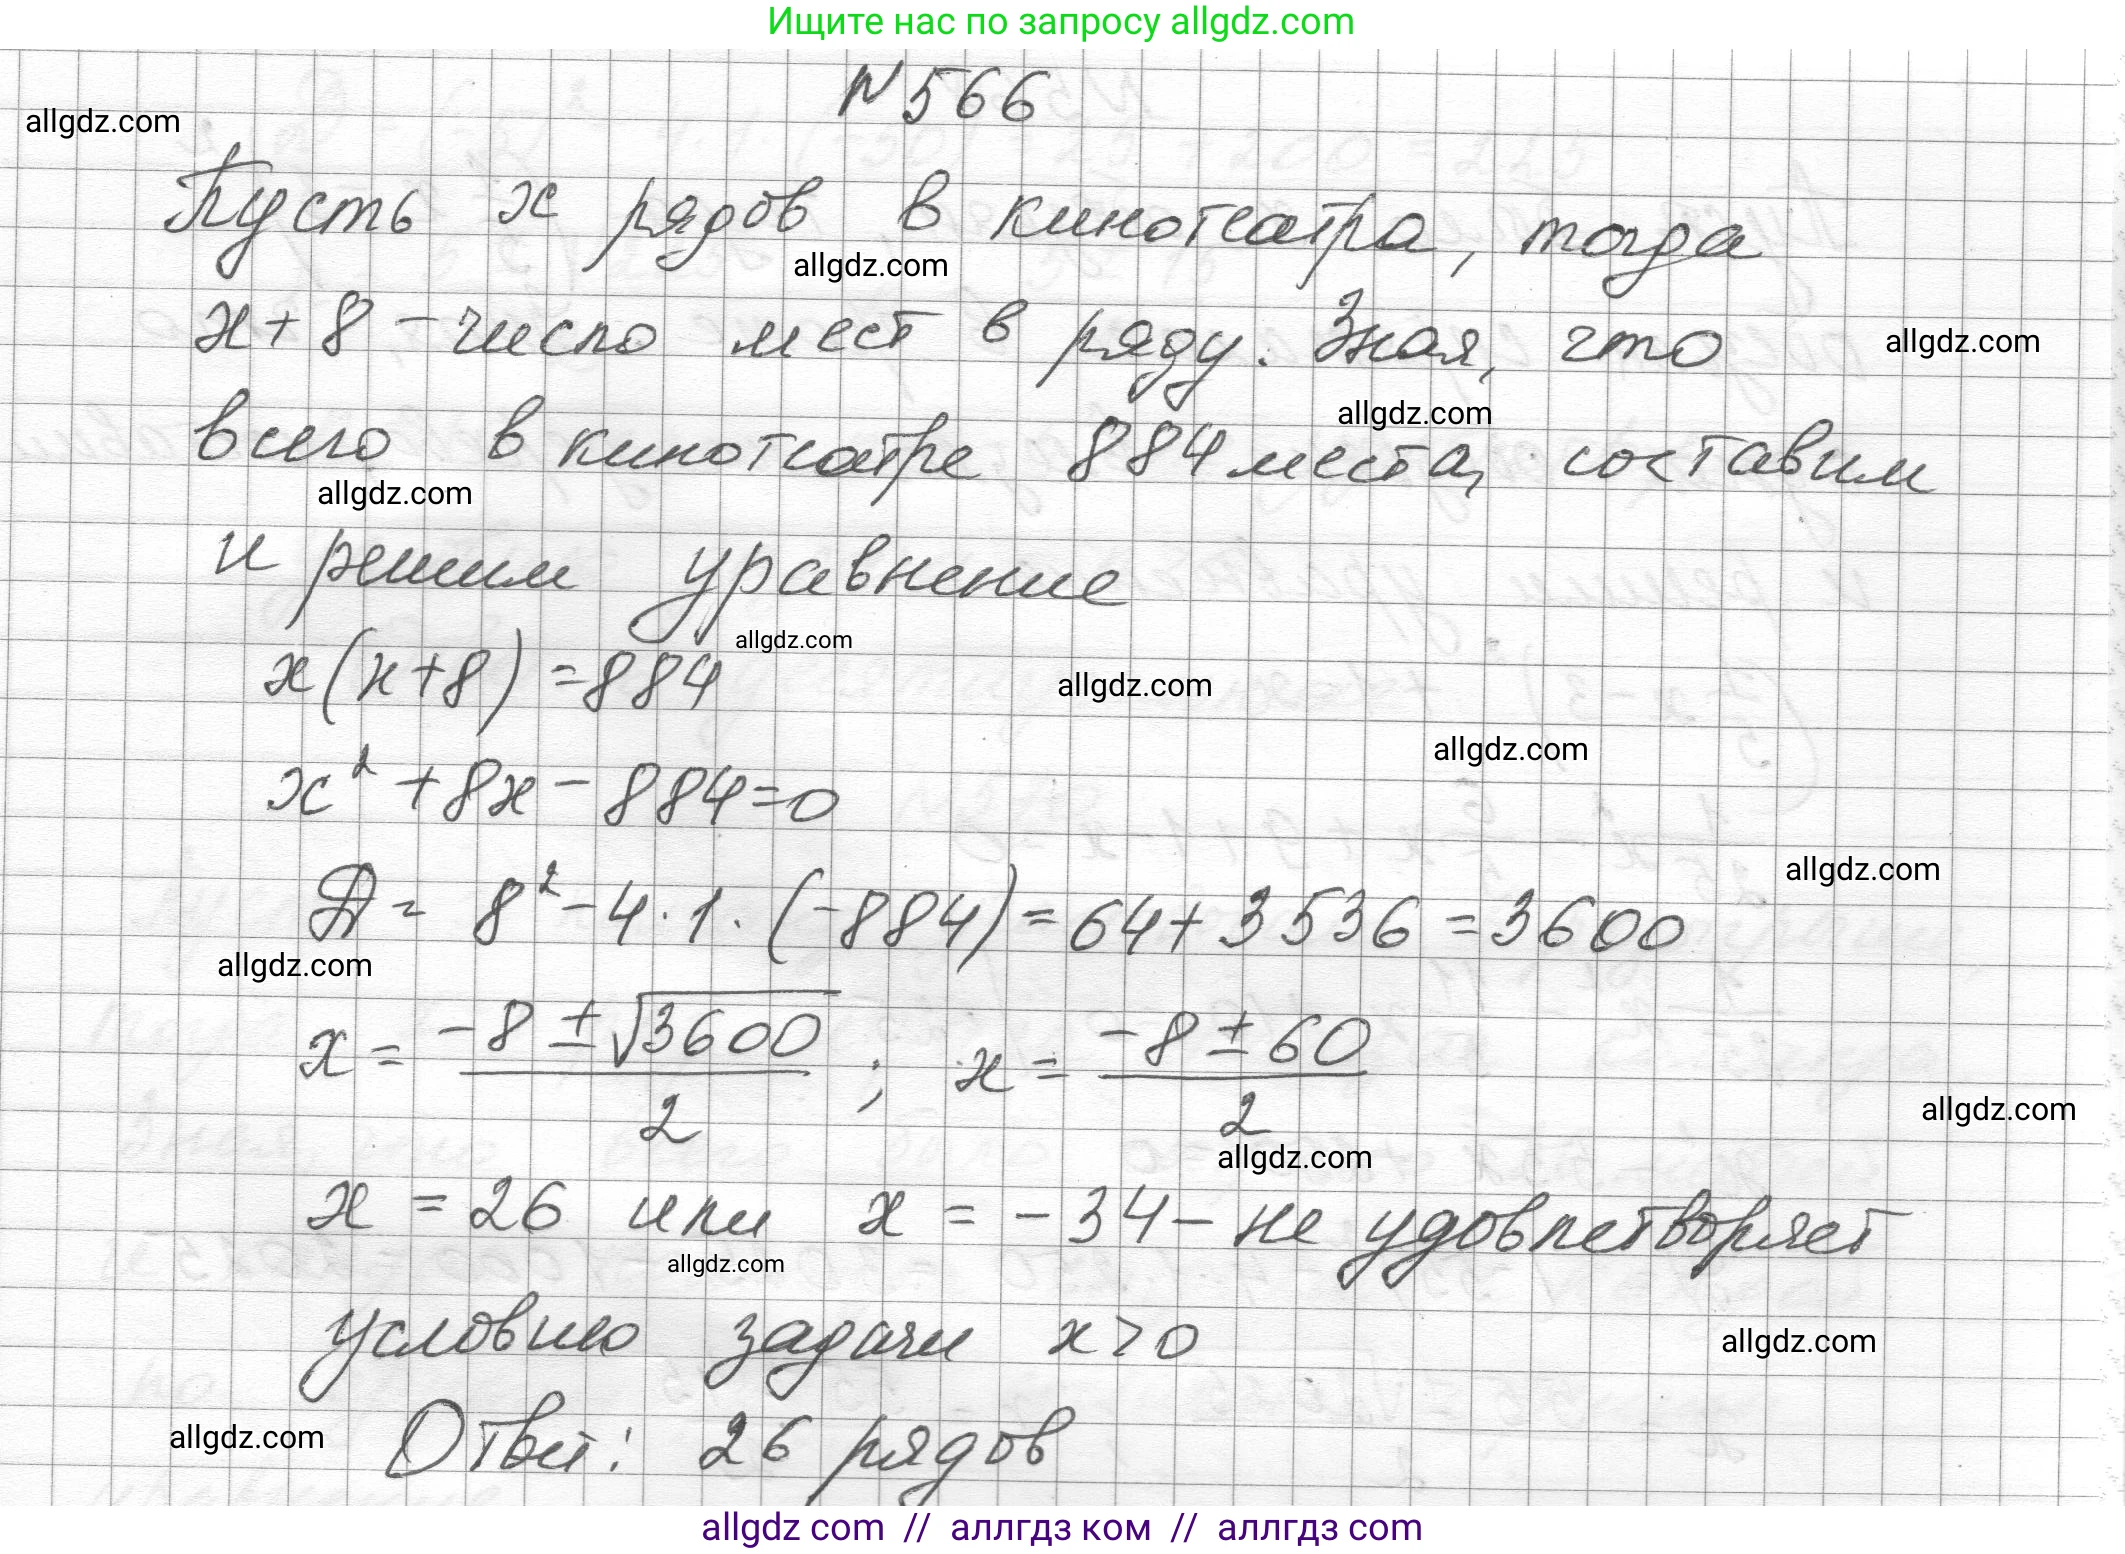 Ищите нас по запросу allgdz.com
N566
allgdz.com
Пусть x рядов в кинотеатра, тогда
allgdz.com
x+8 - число мест в ряду. Зная, что
allgdz.com
allgdz.com
всего в кинотеатре 884 места, составим
allgdz.com
и решим уравнение
allgdz.com
x(x+8)=884
allgdz.com
allgdz.com
x²+8x-884=0
allgdz.com
Д= 8²-4·1·(-884)=64+3536=3600
allgdz.com
x= (-8±√3600)/2 ; x= (-8±60)/2
allgdz.com
allgdz.com
x = 26 или x = -34 - не удовлетворяет
allgdz.com
условию задачи x>0
allgdz.com
Ответ: 26 рядов
allgdz.com
allgdz com // аллгдз ком // аллгдз com